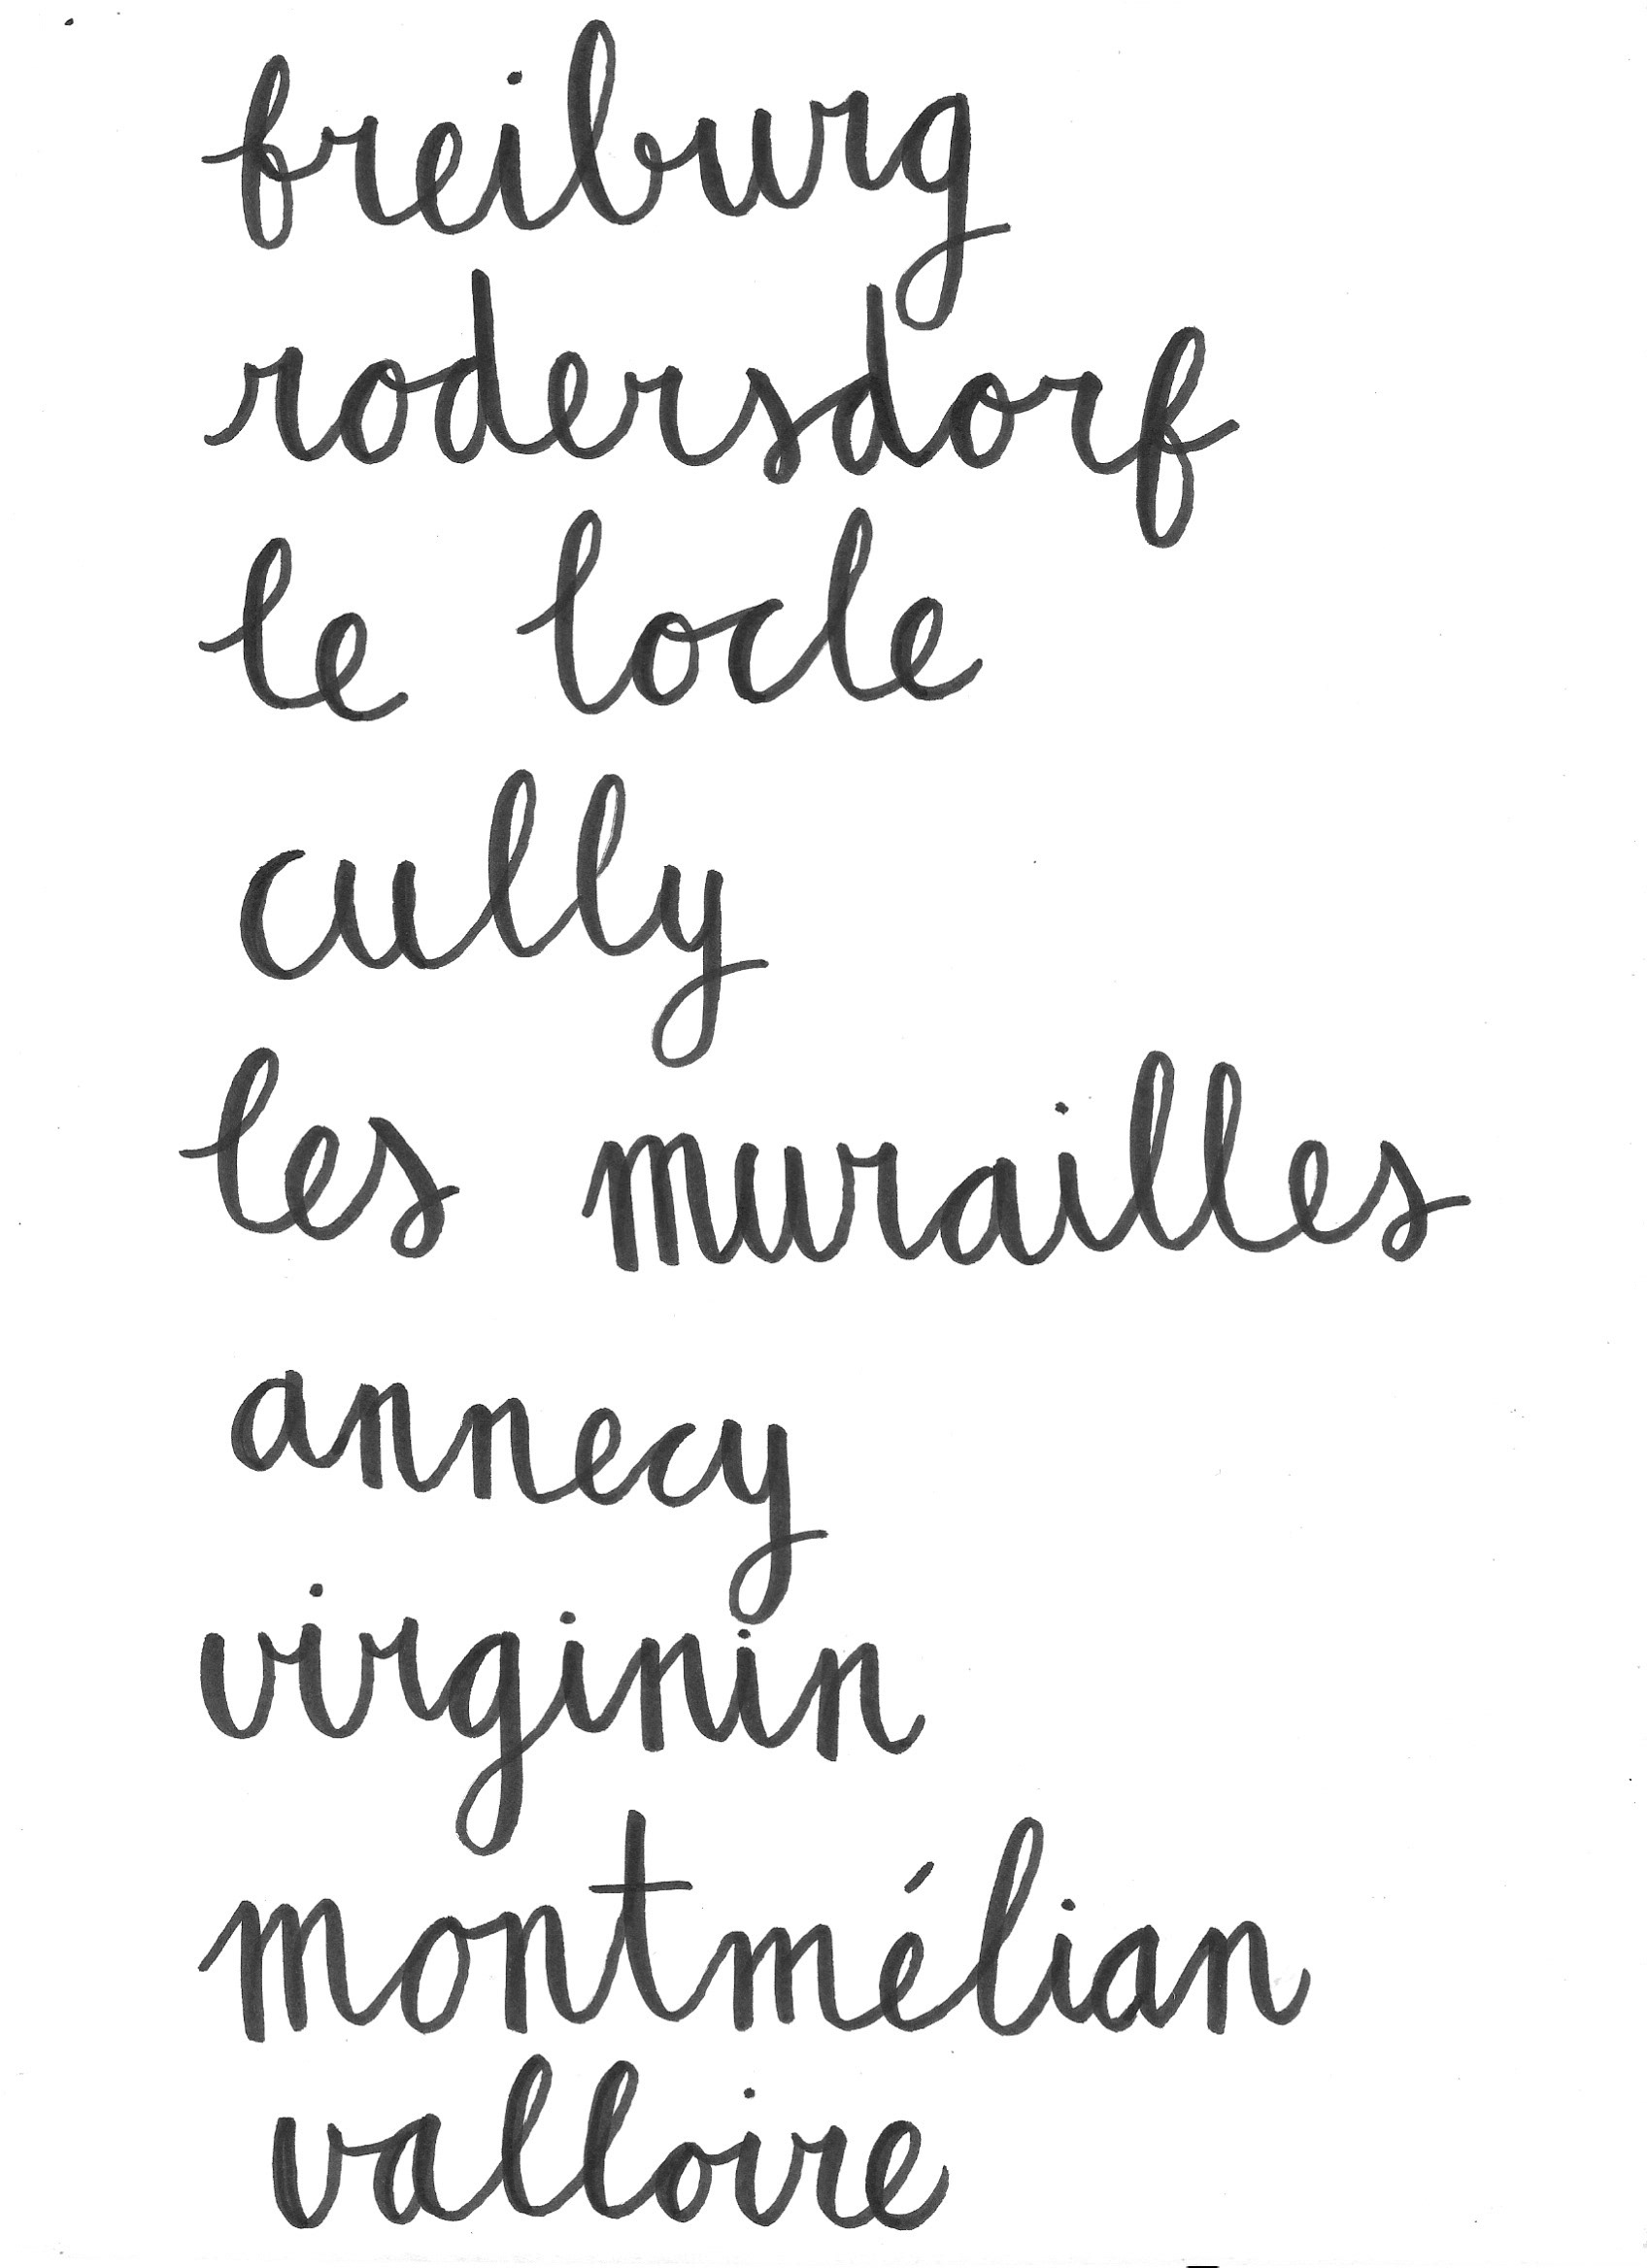 freiburg
rodersdorf
le locle
cully
les murailles
annecy
virginin
montmélian
valloire